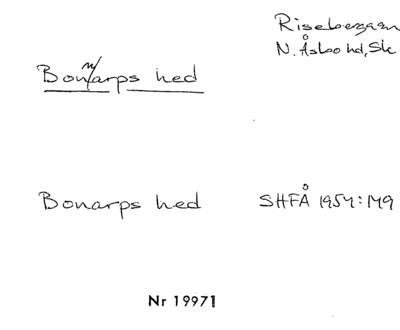 Riseberga sn
N. Åsbo hd, Sk
Bonnarps hed
Bonarps hed
SHFÅ 1954:149
Nr 19971